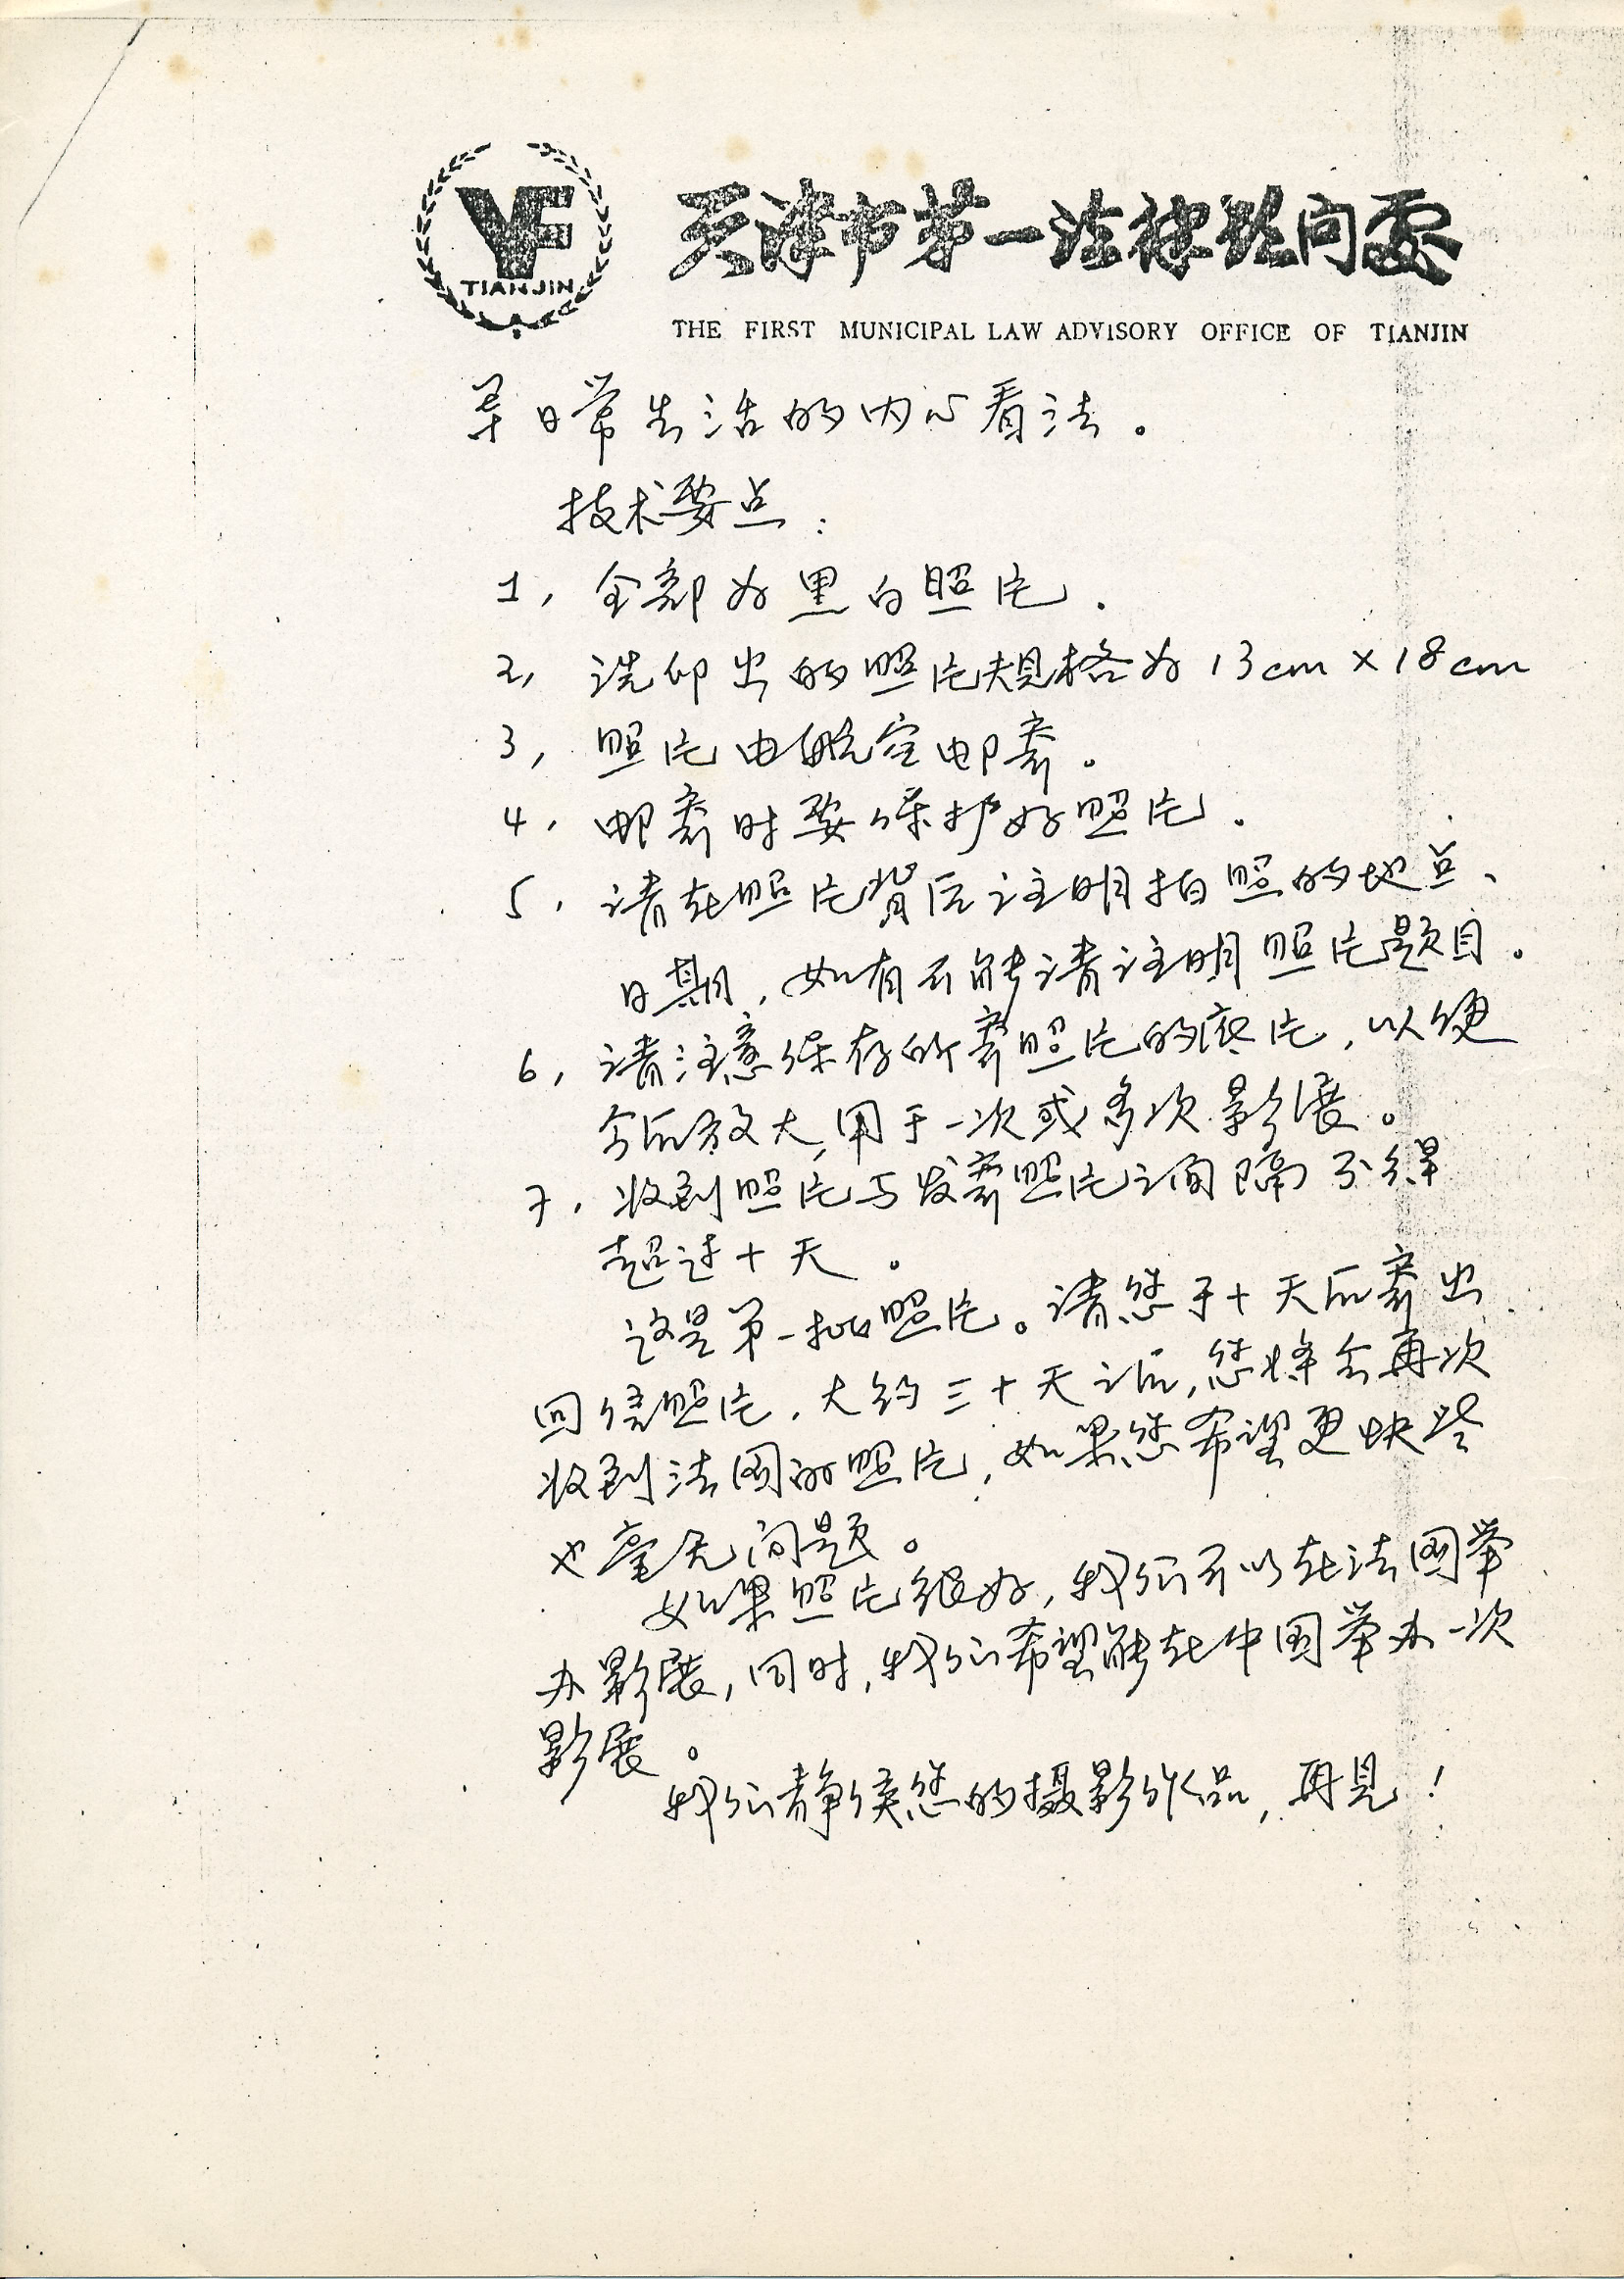 YF
TIANJIN
天津市第一法律顾问处
THE FIRST MUNICIPAL LAW ADVISORY OFFICE OF TIANJIN
日常生活的内心看法。
技术要点：
1, 全部为黑白照片.
2, 洗印出的照片规格为13cm×18cm
3, 照片由航空邮寄。
4, 邮寄时要保护好照片.
5, 请在照片背后注明拍照的地点、
日期, 如有可能请注明照片题目。
6, 请注意保存所寄照片的底片, 以便
今后放大, 用于一次或多次影展。
7, 收到照片与发寄照片之间隔不得
超过十天。
这是第一批照片。请您于十天后寄出
回信照片, 大约三十天之后, 您将会再次
收到法国的照片, 如果您希望更快些
也毫无问题。
如果照片很好, 我们可以在法国举
办影展, 同时, 我们希望能在中国举办一次
影展。
我们静候您的摄影作品, 再见!